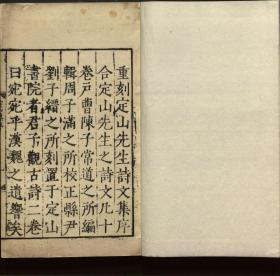 重刻定山先生詩文集序
合定山先生之詩文凡十
卷戸曹陳子常道之所編
輯周子滿之所校正縣尹
劉子縉之所刻置于定山
書院者君子觀古詩二卷
曰宛宛乎漢魏之遺響矣